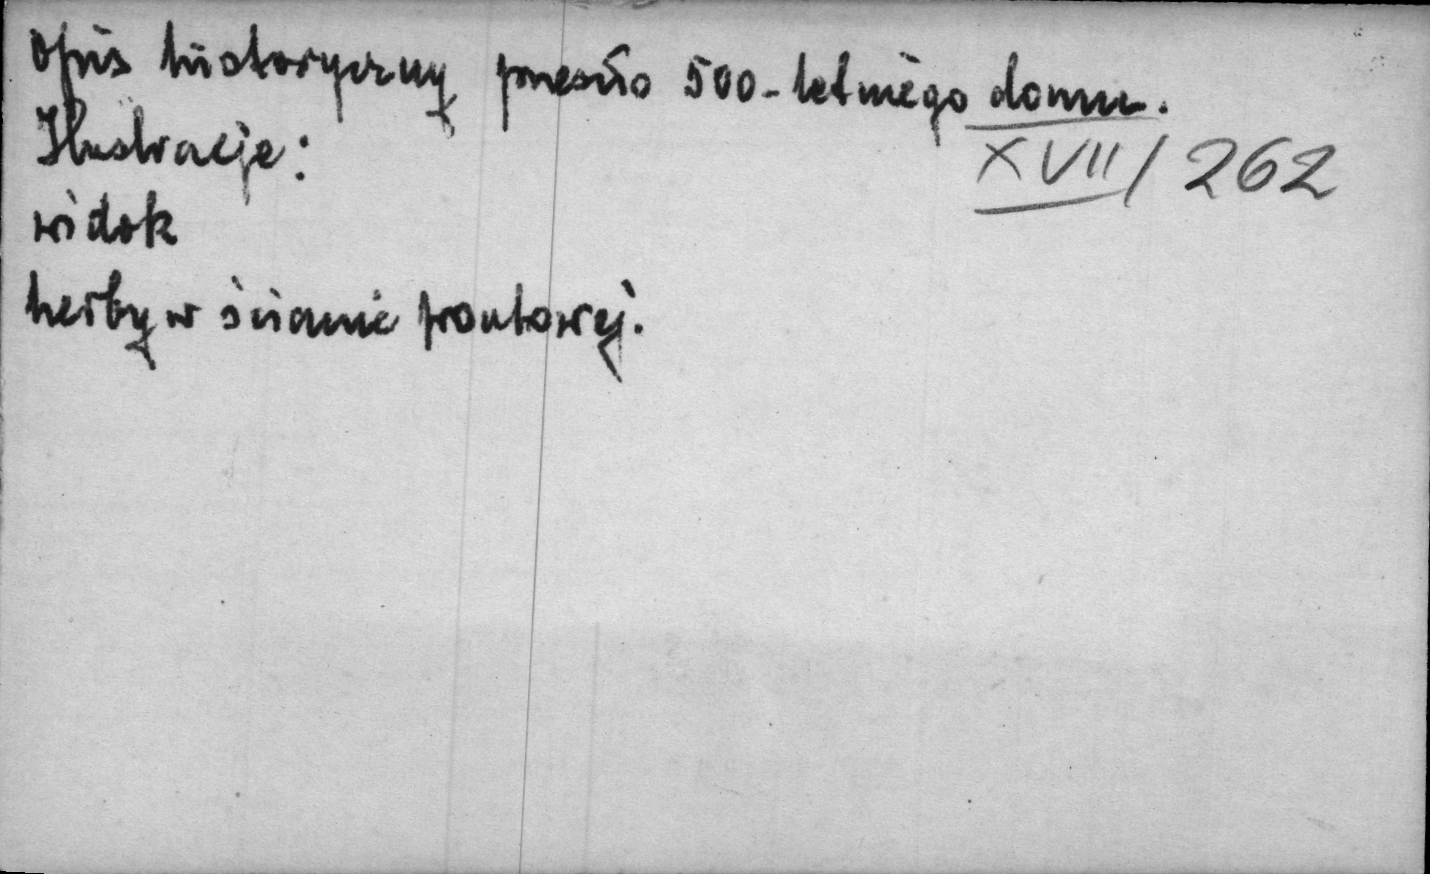 Opis historyczny przeszło 500-letniego domu.
Ilustracje:
XVII/262
widok
herby w ścianie frontowej.